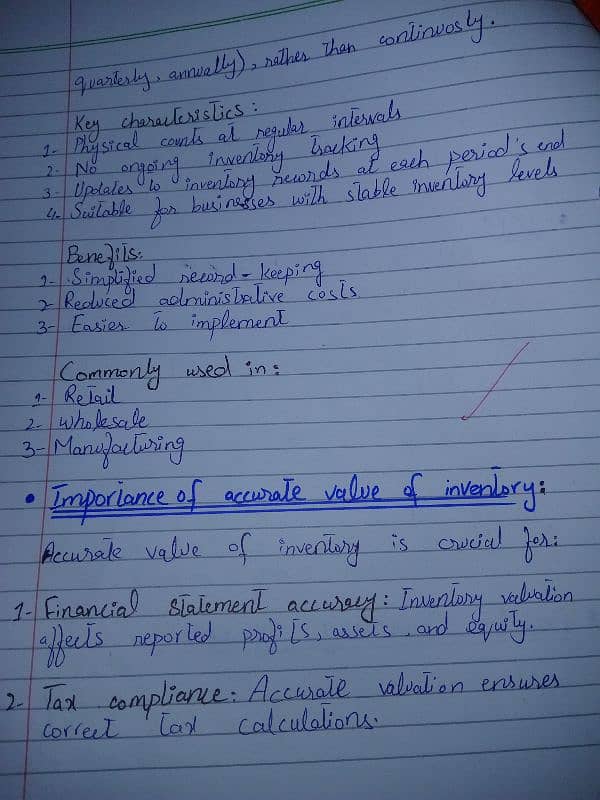 quarterly, annually), rather than continuosly.
Key characteristics:
1- Physical counts at regular intervals
2- No ongoing inventory tracking
3- Updates to inventory records at each period's end
4- Suitable for businesses with stable inventory levels
Benefits:
1- Simplified record-keeping
2- Reduced administrative costs
3- Easier to implement
Commonly used in:
1- Retail
2- Wholesale
3- Manufacturing
• Importance of accurate value of inventory:
Accurate value of inventory is crucial for:
1- Financial statement accuracy: Inventory valuation
affects reported profits, assets, and equity.
2- Tax compliance: Accurate valuation ensures
correct tax calculations.